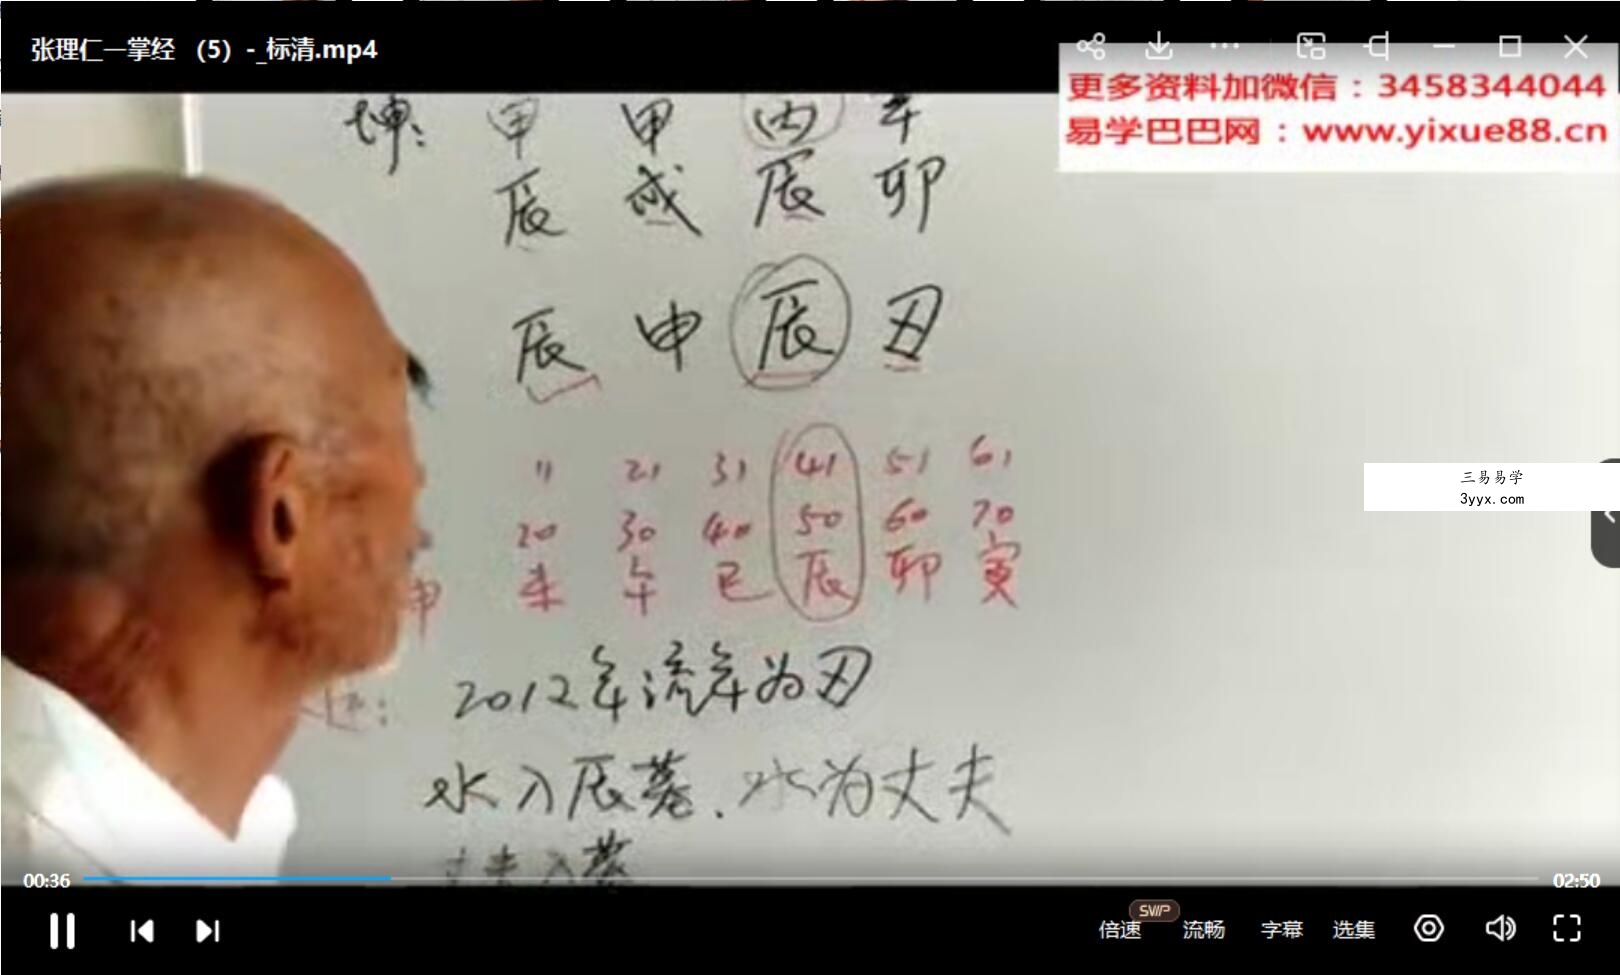 张理仁一掌经 （5）-_标清.mp4
更多资料加微信：3458344044
易学巴巴网：www.yixue88.cn
坤： 甲 甲 丙 辛
辰 戌 辰 卯
辰 申 辰 丑
11 21 31 41 51 61
20 30 40 50 60 70
申 未 午 巳 辰 卯 寅
三易易学
3yyx.com
2012年流年为丑
水入辰墓．水为丈夫
丈夫入墓
00:36
02:50
倍速
SVIP
流畅
字幕
选集